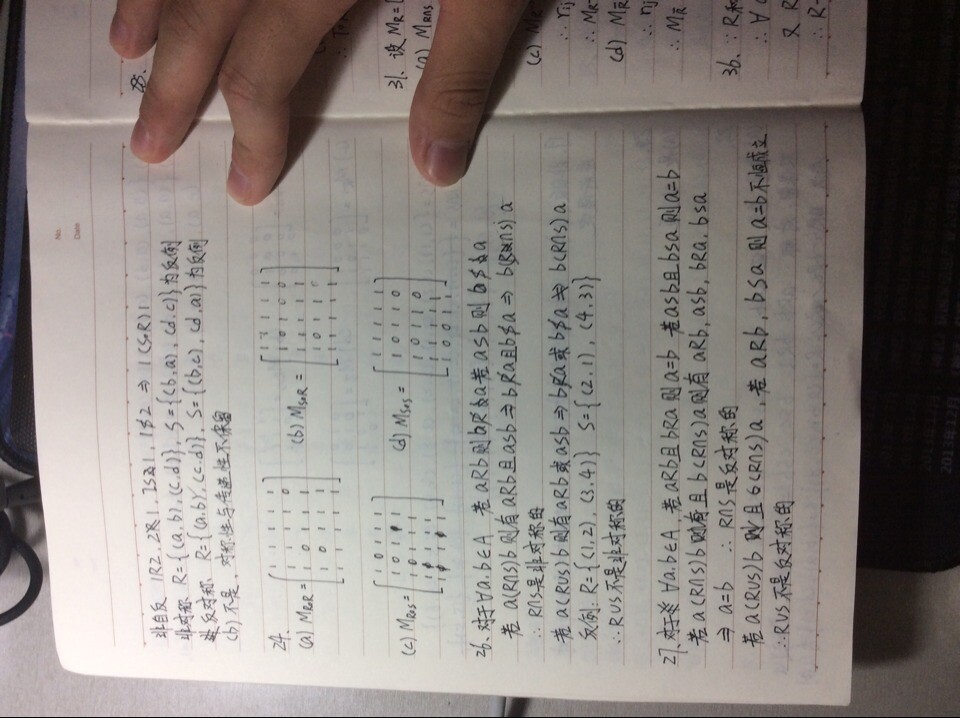 No.
Date
非自反 1R2, 2R̸1, 2S1, 1S̸2 ⇒ 1(S∘R)1
非对称 R={(a,b),(c,d)}, S={(b,a),(d,c)}为反例
非反对称 R={(a,b),(c,d)}, S={(b,c),(d,a)}为反例
(b) 不是, 对称性与传递性不保留
24.
(a) M_R∘R =
1 1 1 1 1
1 1 1 1 0
1 0 1 1 1
1 0 1 1 1
1 1 1 1 1
(b) M_S∘R =
1 1 1 1 1
1 0 1 0 0
1 1 1 1 1
1 0 1 1 0
1 1 1 1 1
(c) M_R∘S =
1 0 1 1 1
1 0 1 1 1
1 0 1 1 1
(d) M_S∘S =
1 1 1 1 1
1 0 1 1 0
1 0 1 1 0
1 0 1 1 1
1 1 1 1 1
26. 对于∀a,b∈A 若aRb则bR̸a若aSb则bS̸a
若a(R∩S)b则有aRb且aSb⇒bR̸a且bS̸a ⇒ b(R∩S)a
∴R∩S是非对称的
若a(R∪S)b则有aRb或aSb⇒bR̸a或bS̸a ⇏ b(R∩S)a
反例: R={(1,2),(3,4)} S={(2,1),(4,3)}
∴R∪S不是非对称的
27. 对于∀a,b∈A, 若aRb且bRa则a=b 若aSb且bSa则a=b
若a(R∩S)b且b(R∩S)a则有aRb, aSb, bRa, bSa
⇒ a=b ∴R∩S是反对称的
若a(R∪S)b且b(R∩S)a, 若aRb, bSa 则a=b不恒成立
∴R∪S不是反对称的
28.
31. 设M_R=
(a) M_R∩S
(c) M_R
∴ r_ij
∴ M_R
(d) M_R̄
∴ r_ij
∴ M_R̄
36. ∵R和
∴∀
又R
∴R-